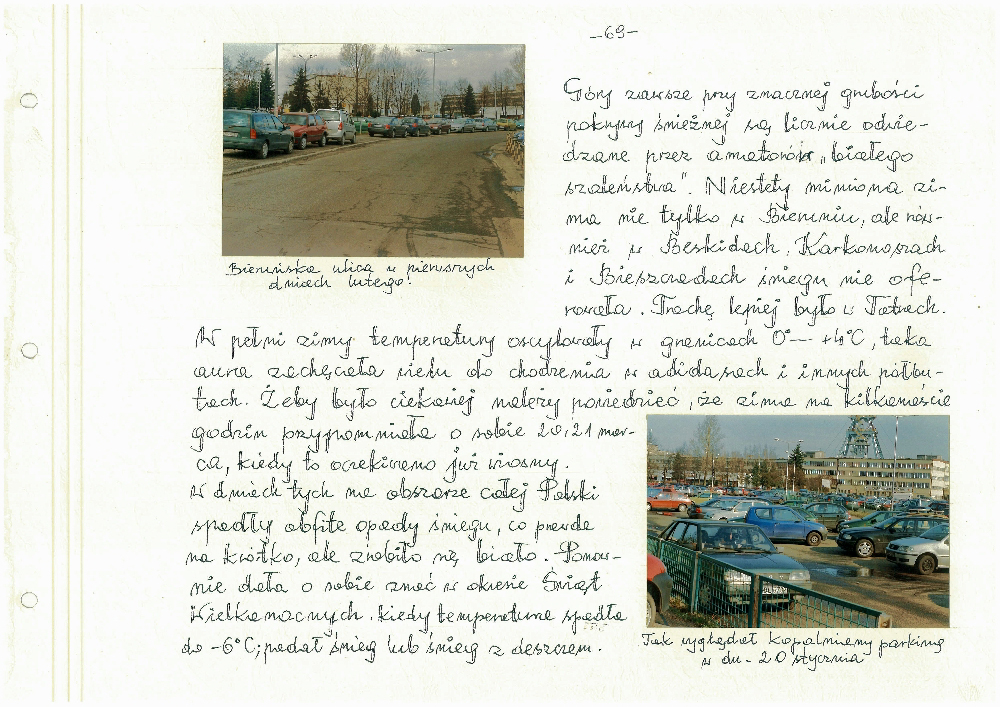 -69-
Góry zawsze przy znacznej grubości
pokrywy śnieżnej są licznie odwie-
dzane przez amatorów „białego
szaleństwa". Niestety miniona zi-
ma nie tylko w Bieruniu, ale rów-
nież w Beskidach, Karkonoszach
i Bieszczadach śniegu nie ofe-
rowała. Trochę lepiej było w Tatrach.
Bieruńska ulica w pierwszych
dniach lutego.
W pełni zimy temperatury oscylowały w granicach 0°— +4°C, taka
aura zachęcała wielu do chodzenia w adidasach i innych półbu-
tach. Żeby było ciekawiej należy powiedzieć, że zima na kilkanaście
godzin przypomniała o sobie 20,21 mar-
ca, kiedy to oczekiwano już wiosny.
W dniach tych na obszarze całej Polski
spadły obfite opady śniegu, co prawda
na krótko, ale zrobiło się biało. Ponow-
nie dała o sobie znać w okresie Świąt
Wielkanocnych, kiedy temperatura spadła
do -6°C; padał śnieg lub śnieg z deszczem.
Tak wyglądał kopalniany parking
w dn. 20 stycznia